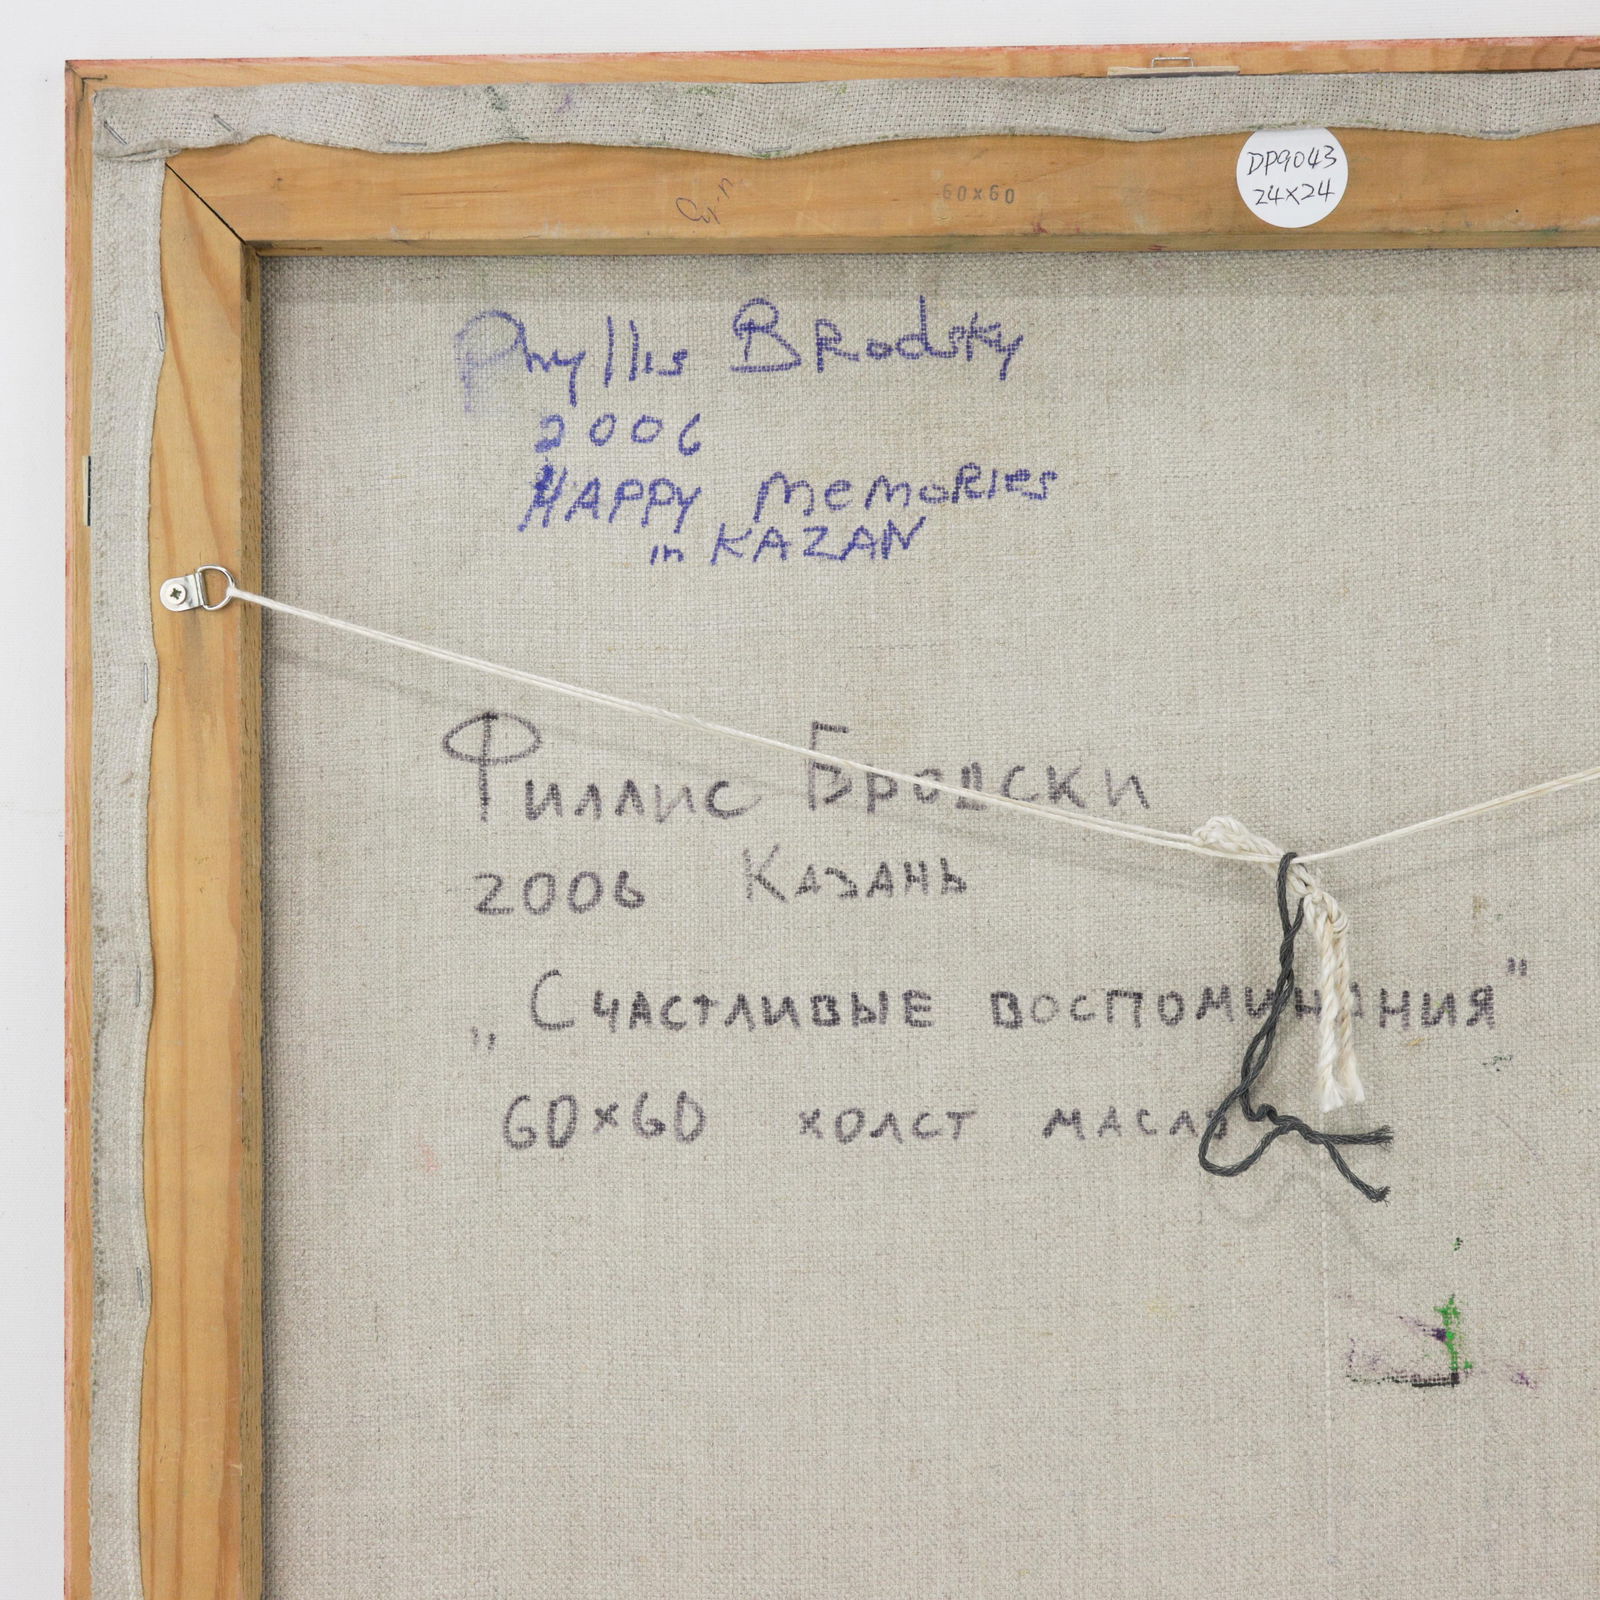 DP9043
24x24
60x60
Phyllis Brodsky
2006
HAPPY memories
in KAZAN
Филлис Бродски
2006 Казань
„Счастливые воспоминания"
60x60 холст масло